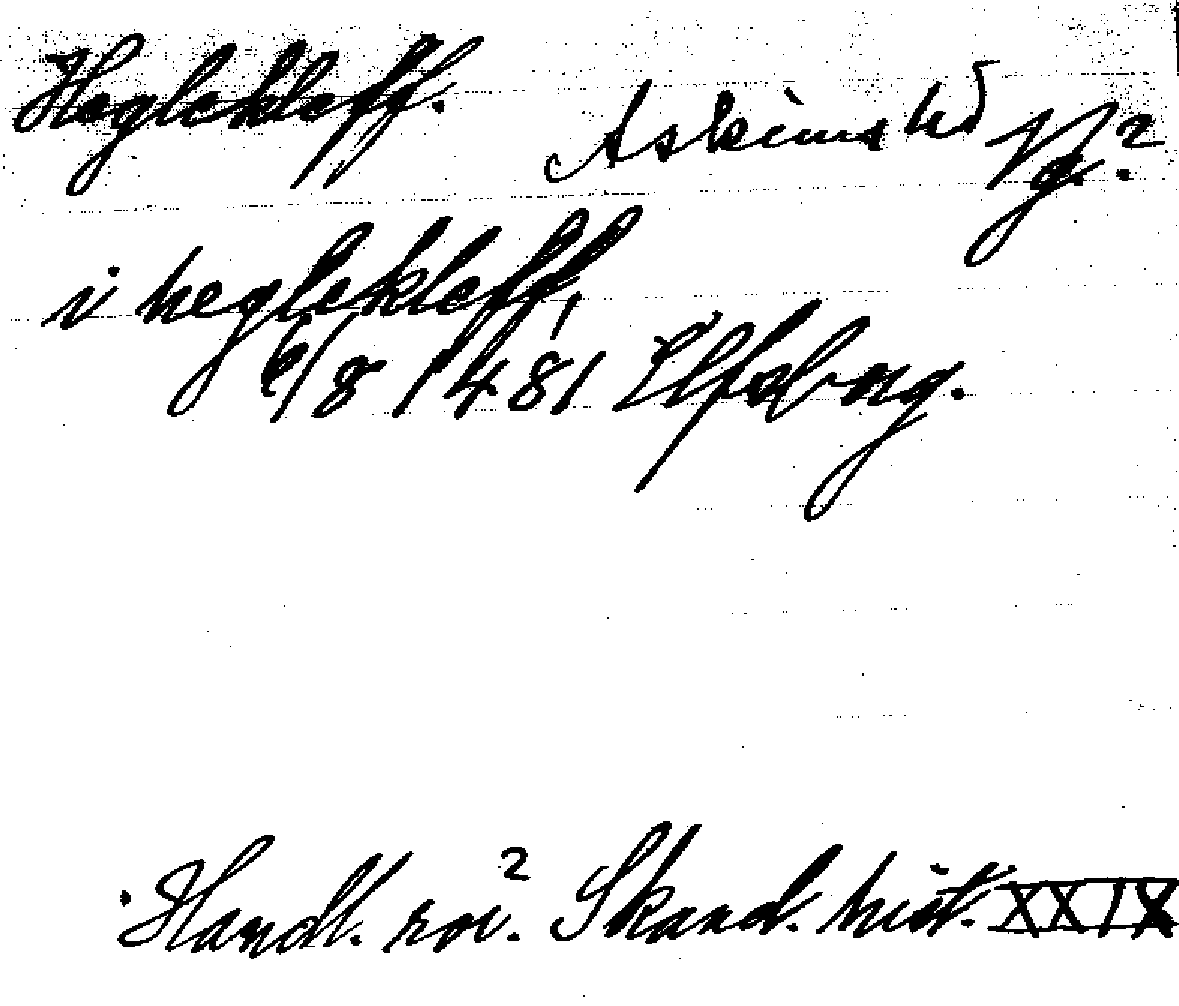 Heglekleff. Askims hd Vg.?
i heglekleff,
6/8 1481 Elfsborg.
Handl. rör. Skand. hist. XXIX